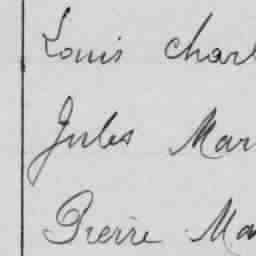 Louis Charl
Jules Mar
Pierre Ma